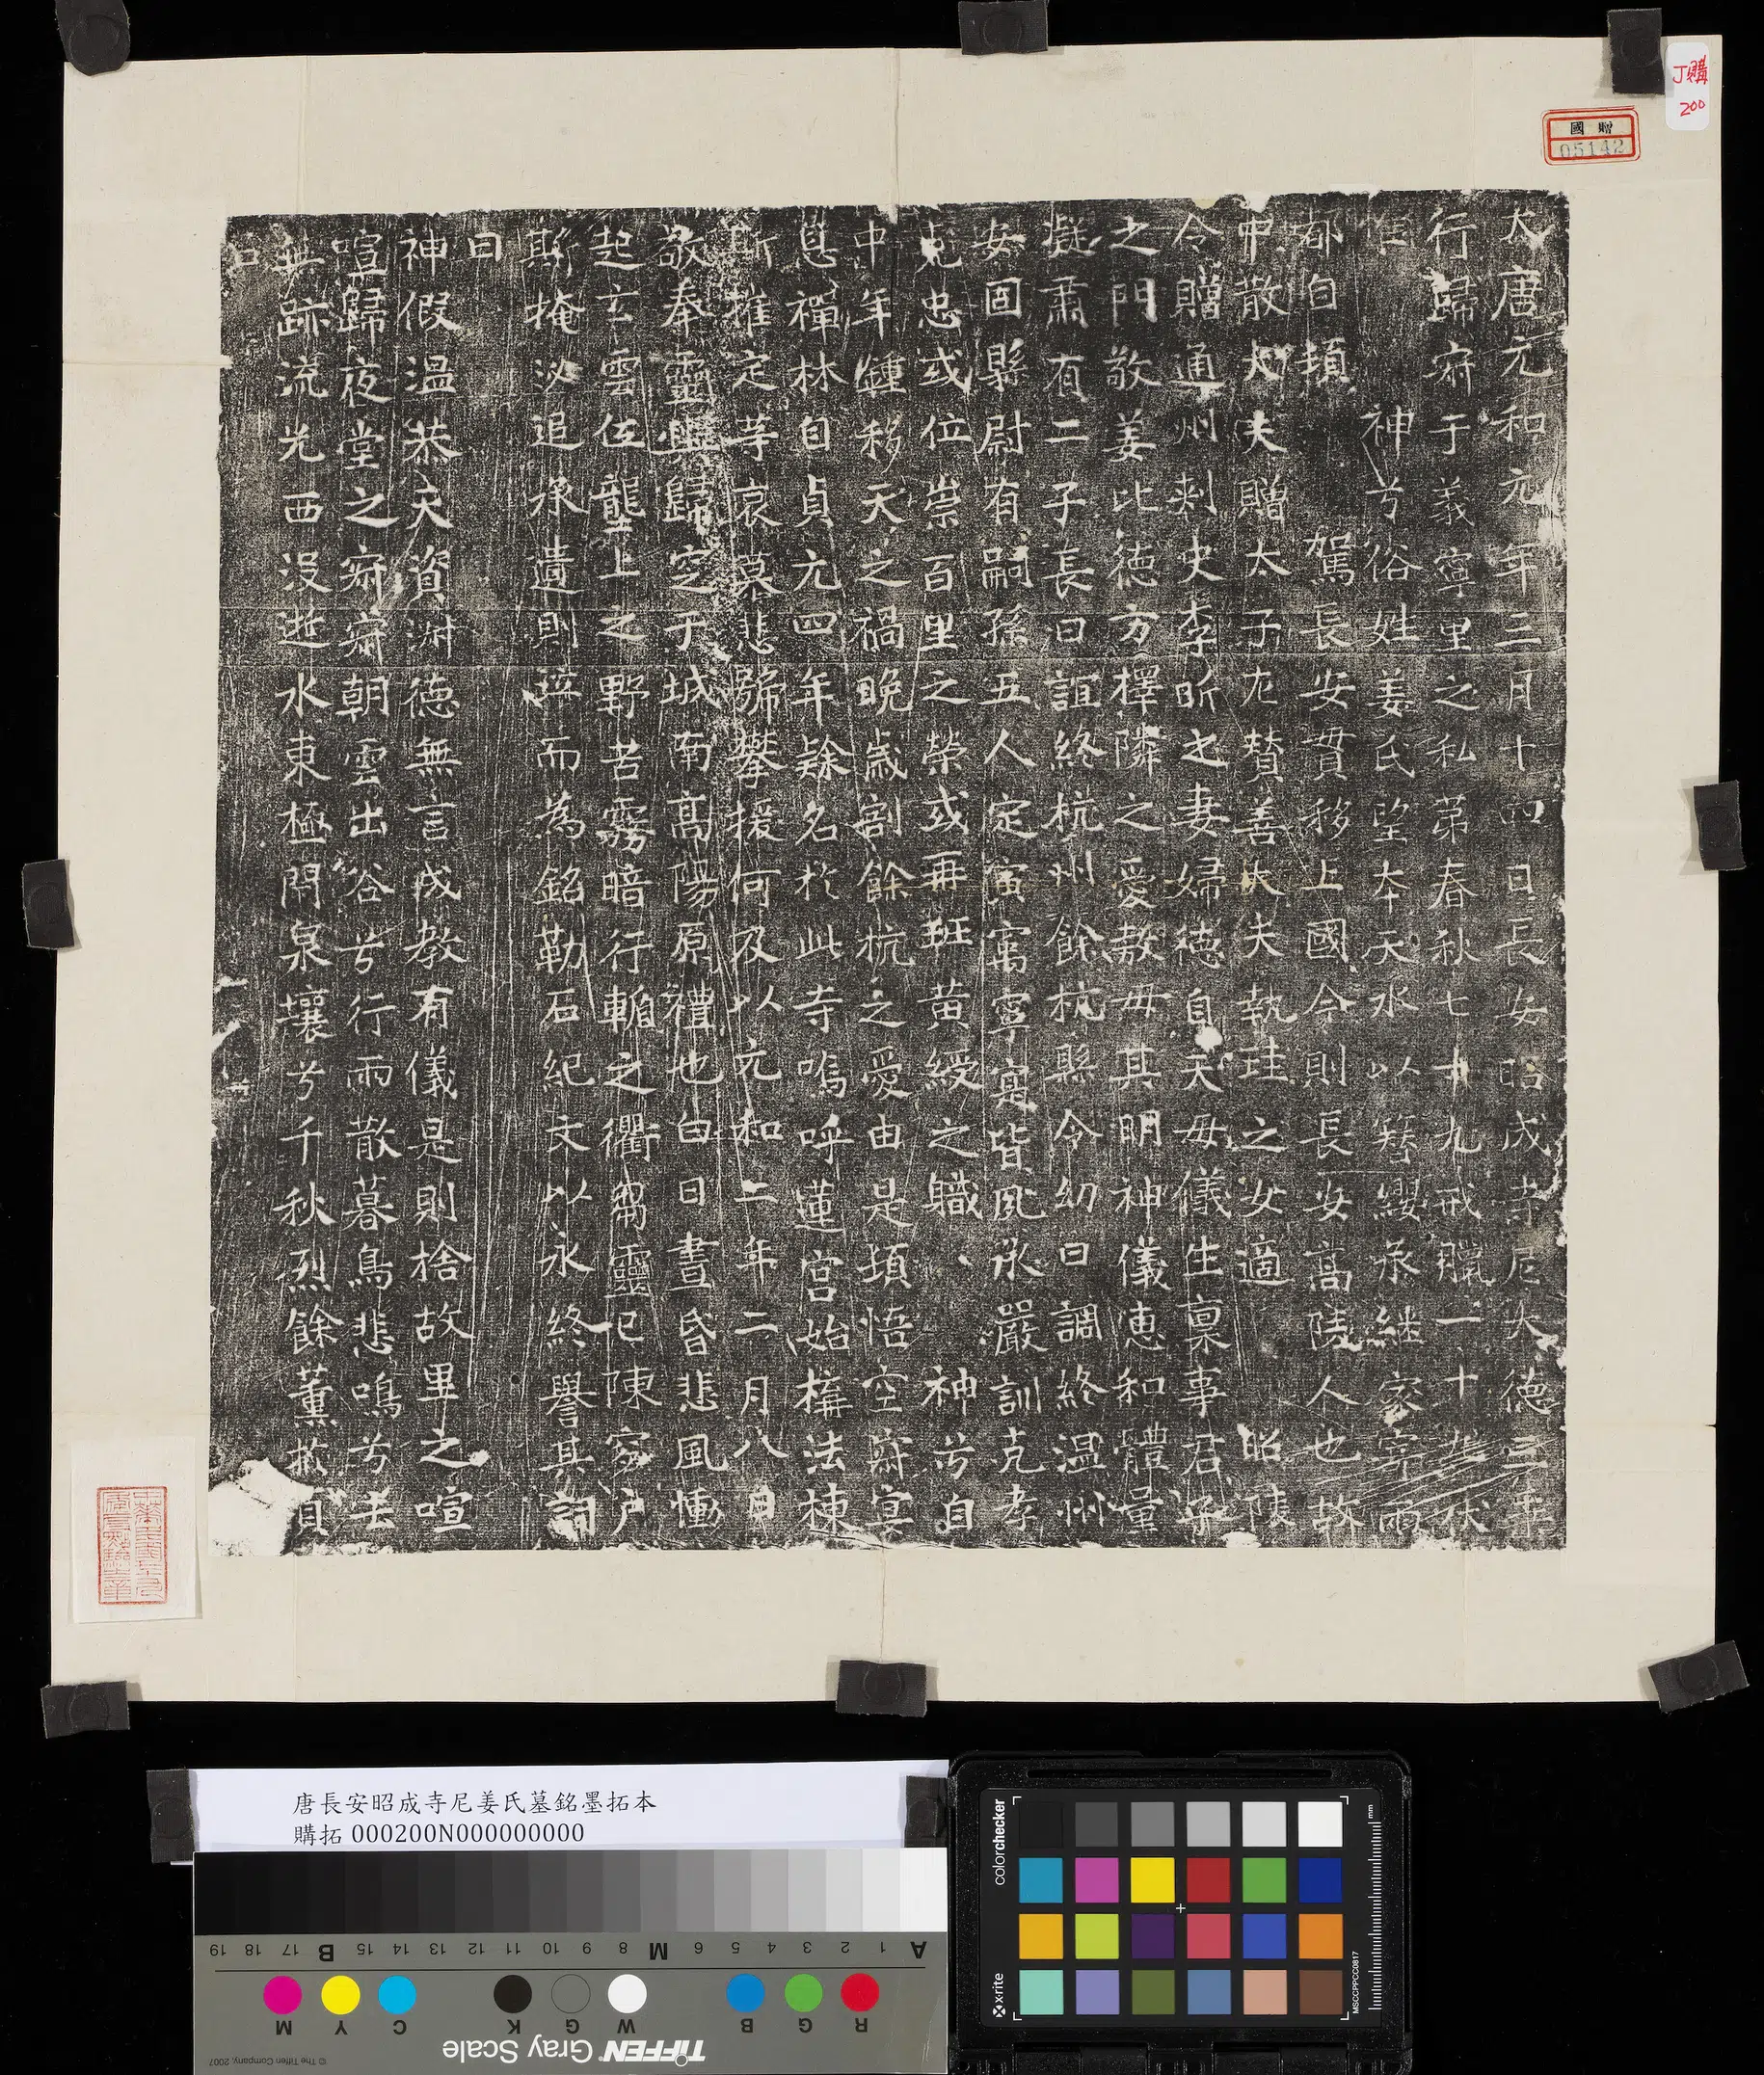 J購
200
國贈
05142
大唐元和元年三月十四日長安昭成寺尼大德三乘
行歸寂于義寧里之私第春秋七十九戒臘一十伏
惟 神兮俗姓姜氏望本天水以簪纓承継家寄兩
都自頃 駕長安貫移上國今則長安高陵人也故
中散大夫贈太子左贊善大夫執珪之女適 昭陵
令贈通州刺史李昕之妻婦德自天母儀生稟事君子
之門敬姜比德方擇隣之愛教毋其明神儀惠和體量
凝肅有二子長曰誼終杭州餘杭縣令幼曰調終温州
安固縣尉有嗣孫五人定寅寓寧寔皆夙承嚴訓克孝
克忠或位崇百里之榮或再班黄綬之職 神兮自
中年鍾移天之禍晚歳割餘杭之愛由是頊悟空寂宴
息禪林自貞元四年隸名於此寺嗚呼蓮宫始構法棟
斯摧定等哀慕悲號攀援何及以元和二年二月八日
敬奉靈輿歸窆于城南高陽原禮也白日晝昏悲風慟
起玄雲伍壟上之野苦霧暗行輴之衢芻靈已陳穸户
斯掩泣追承遺則誣而為銘勒石紀文以永終譽其詞
曰
神假温恭天資淋德無言成教有儀是則捨故里之喧
喧歸夜堂之寂寂朝雲出谷兮行雨散暮鳥悲鳴兮去
無跡流光西没逝水東極閇泉壤兮千秋烈餘薰於貞
唐長安昭成寺尼姜氏墓銘墨拓本
購拓 000200N000000000
A 1 2 3 4 5 6 M 8 9 10 11 12 13 14 15 B 17 18 19
R G B W G K C Y M
TIFFEN Gray Scale
© The Tiffen Company, 2007
colorchecker
x-rite
mm
MSCCPPCC0817